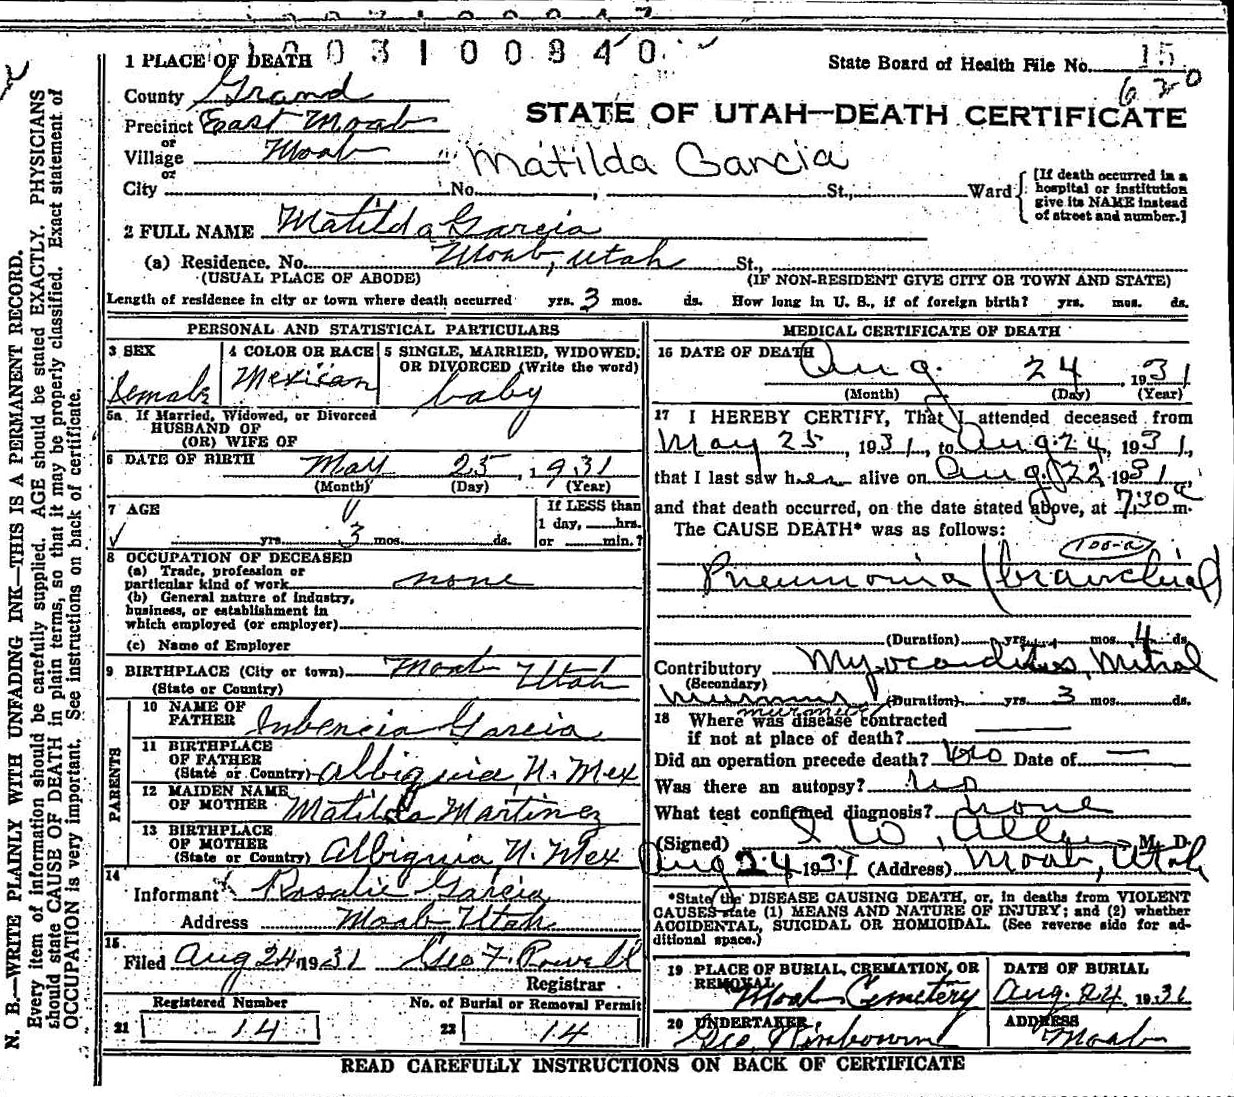 1 0 0 3 1 0 0 8 4 0
1 PLACE OF DEATH
State Board of Health File No. 15
630
County Grand
STATE OF UTAH—DEATH CERTIFICATE
Precinct East Moab
or
Village Moab
Matilda Garcia
or
City No. , St., Ward
[If death occurred in a hospital or institution give its NAME instead of street and number.]
2 FULL NAME Matilda Garcia
(a) Residence. No. Moab, Utah St.,
(USUAL PLACE OF ABODE) (IF NON-RESIDENT GIVE CITY OR TOWN AND STATE)
Length of residence in city or town where death occurred yrs. 3 mos. ds. How long in U. S., if of foreign birth? yrs. mos. ds.
PERSONAL AND STATISTICAL PARTICULARS
3 SEX Female
4 COLOR OR RACE Mexican
5 SINGLE, MARRIED, WIDOWED, OR DIVORCED (Write the word) baby
5a If Married, Widowed, or Divorced
HUSBAND OF
(OR) WIFE OF
6 DATE OF BIRTH May 25, 931
(Month) (Day) (Year)
7 AGE
yrs. 3 mos. ds.
If LESS than 1 day, hrs. or min.?
8 OCCUPATION OF DECEASED
(a) Trade, profession or
particular kind of work none
(b) General nature of industry,
business, or establishment in
which employed (or employer)
(c) Name of Employer
9 BIRTHPLACE (City or town) Moab Utah
(State or Country)
PARENTS
10 NAME OF FATHER Garcia
11 BIRTHPLACE OF FATHER
(State or Country) Albiquia, N. Mex
12 MAIDEN NAME OF MOTHER Matilda Martinez
13 BIRTHPLACE OF MOTHER
(State or Country) Albiquia N. Mex
14
Informant Rosalie Garcia
Address Moab Utah
15
Filed Aug 24 1931 Geo F. Powell
Registrar
Registered Number
21 14
No. of Burial or Removal Permit
22 14
MEDICAL CERTIFICATE OF DEATH
16 DATE OF DEATH Aug. 24, 1931
(Month) (Day) (Year)
17 I HEREBY CERTIFY, That I attended deceased from
May 25, 1931, to Aug. 24, 1931,
that I last saw her alive on Aug. 22 1931,
and that death occurred, on the date stated above, at 7:30 m.
The CAUSE DEATH* was as follows:
Pneumonia (branchial)
(Duration) yrs. mos. 4 ds.
Contributory Myocarditis, Mitral
(Secondary)
murmur (Duration) yrs. 3 mos. ds.
murmur
18 Where was disease contracted
if not at place of death?
Did an operation precede death? no Date of —
Was there an autopsy? no
What test confirmed diagnosis? none
(Signed) I W. Allen, M. D.
Aug 24 1931 (Address) Moab, Utah
*State the DISEASE CAUSING DEATH, or, in deaths from VIOLENT
CAUSES state (1) MEANS AND NATURE OF INJURY; and (2) whether
ACCIDENTAL, SUICIDAL OR HOMICIDAL. (See reverse side for ad-
ditional space.)
19 PLACE OF BURIAL, CREMATION, OR REMOVAL
Moab Cemetery
DATE OF BURIAL
Aug. 24 1931
20 UNDERTAKER
Geo.
ADDRESS
Moab
READ CAREFULLY INSTRUCTIONS ON BACK OF CERTIFICATE
N. B.—WRITE PLAINLY WITH UNFADING INK—THIS IS A PERMANENT RECORD.
Every item of information should be carefully supplied. AGE should be stated EXACTLY. PHYSICIANS
should state CAUSE OF DEATH in plain terms, so that it may be properly classified. Exact statement of
OCCUPATION is very important. See instructions on back of certificate.